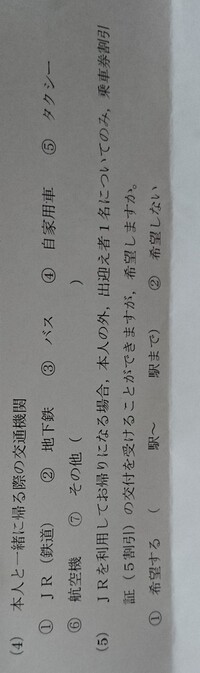 (4) 本人と一緒に帰る際の交通機関
① JR(鉄道) ② 地下鉄 ③ バス ④ 自家用車 ⑤ タクシー
⑥ 航空機 ⑦ その他( )
(5) JRを利用してお帰りになる場合,本人の外,出迎え者1名についてのみ,乗車券割引
証(5割引)の交付を受けることができますが,希望しますか。
① 希望する( 駅〜 駅まで) ② 希望しない